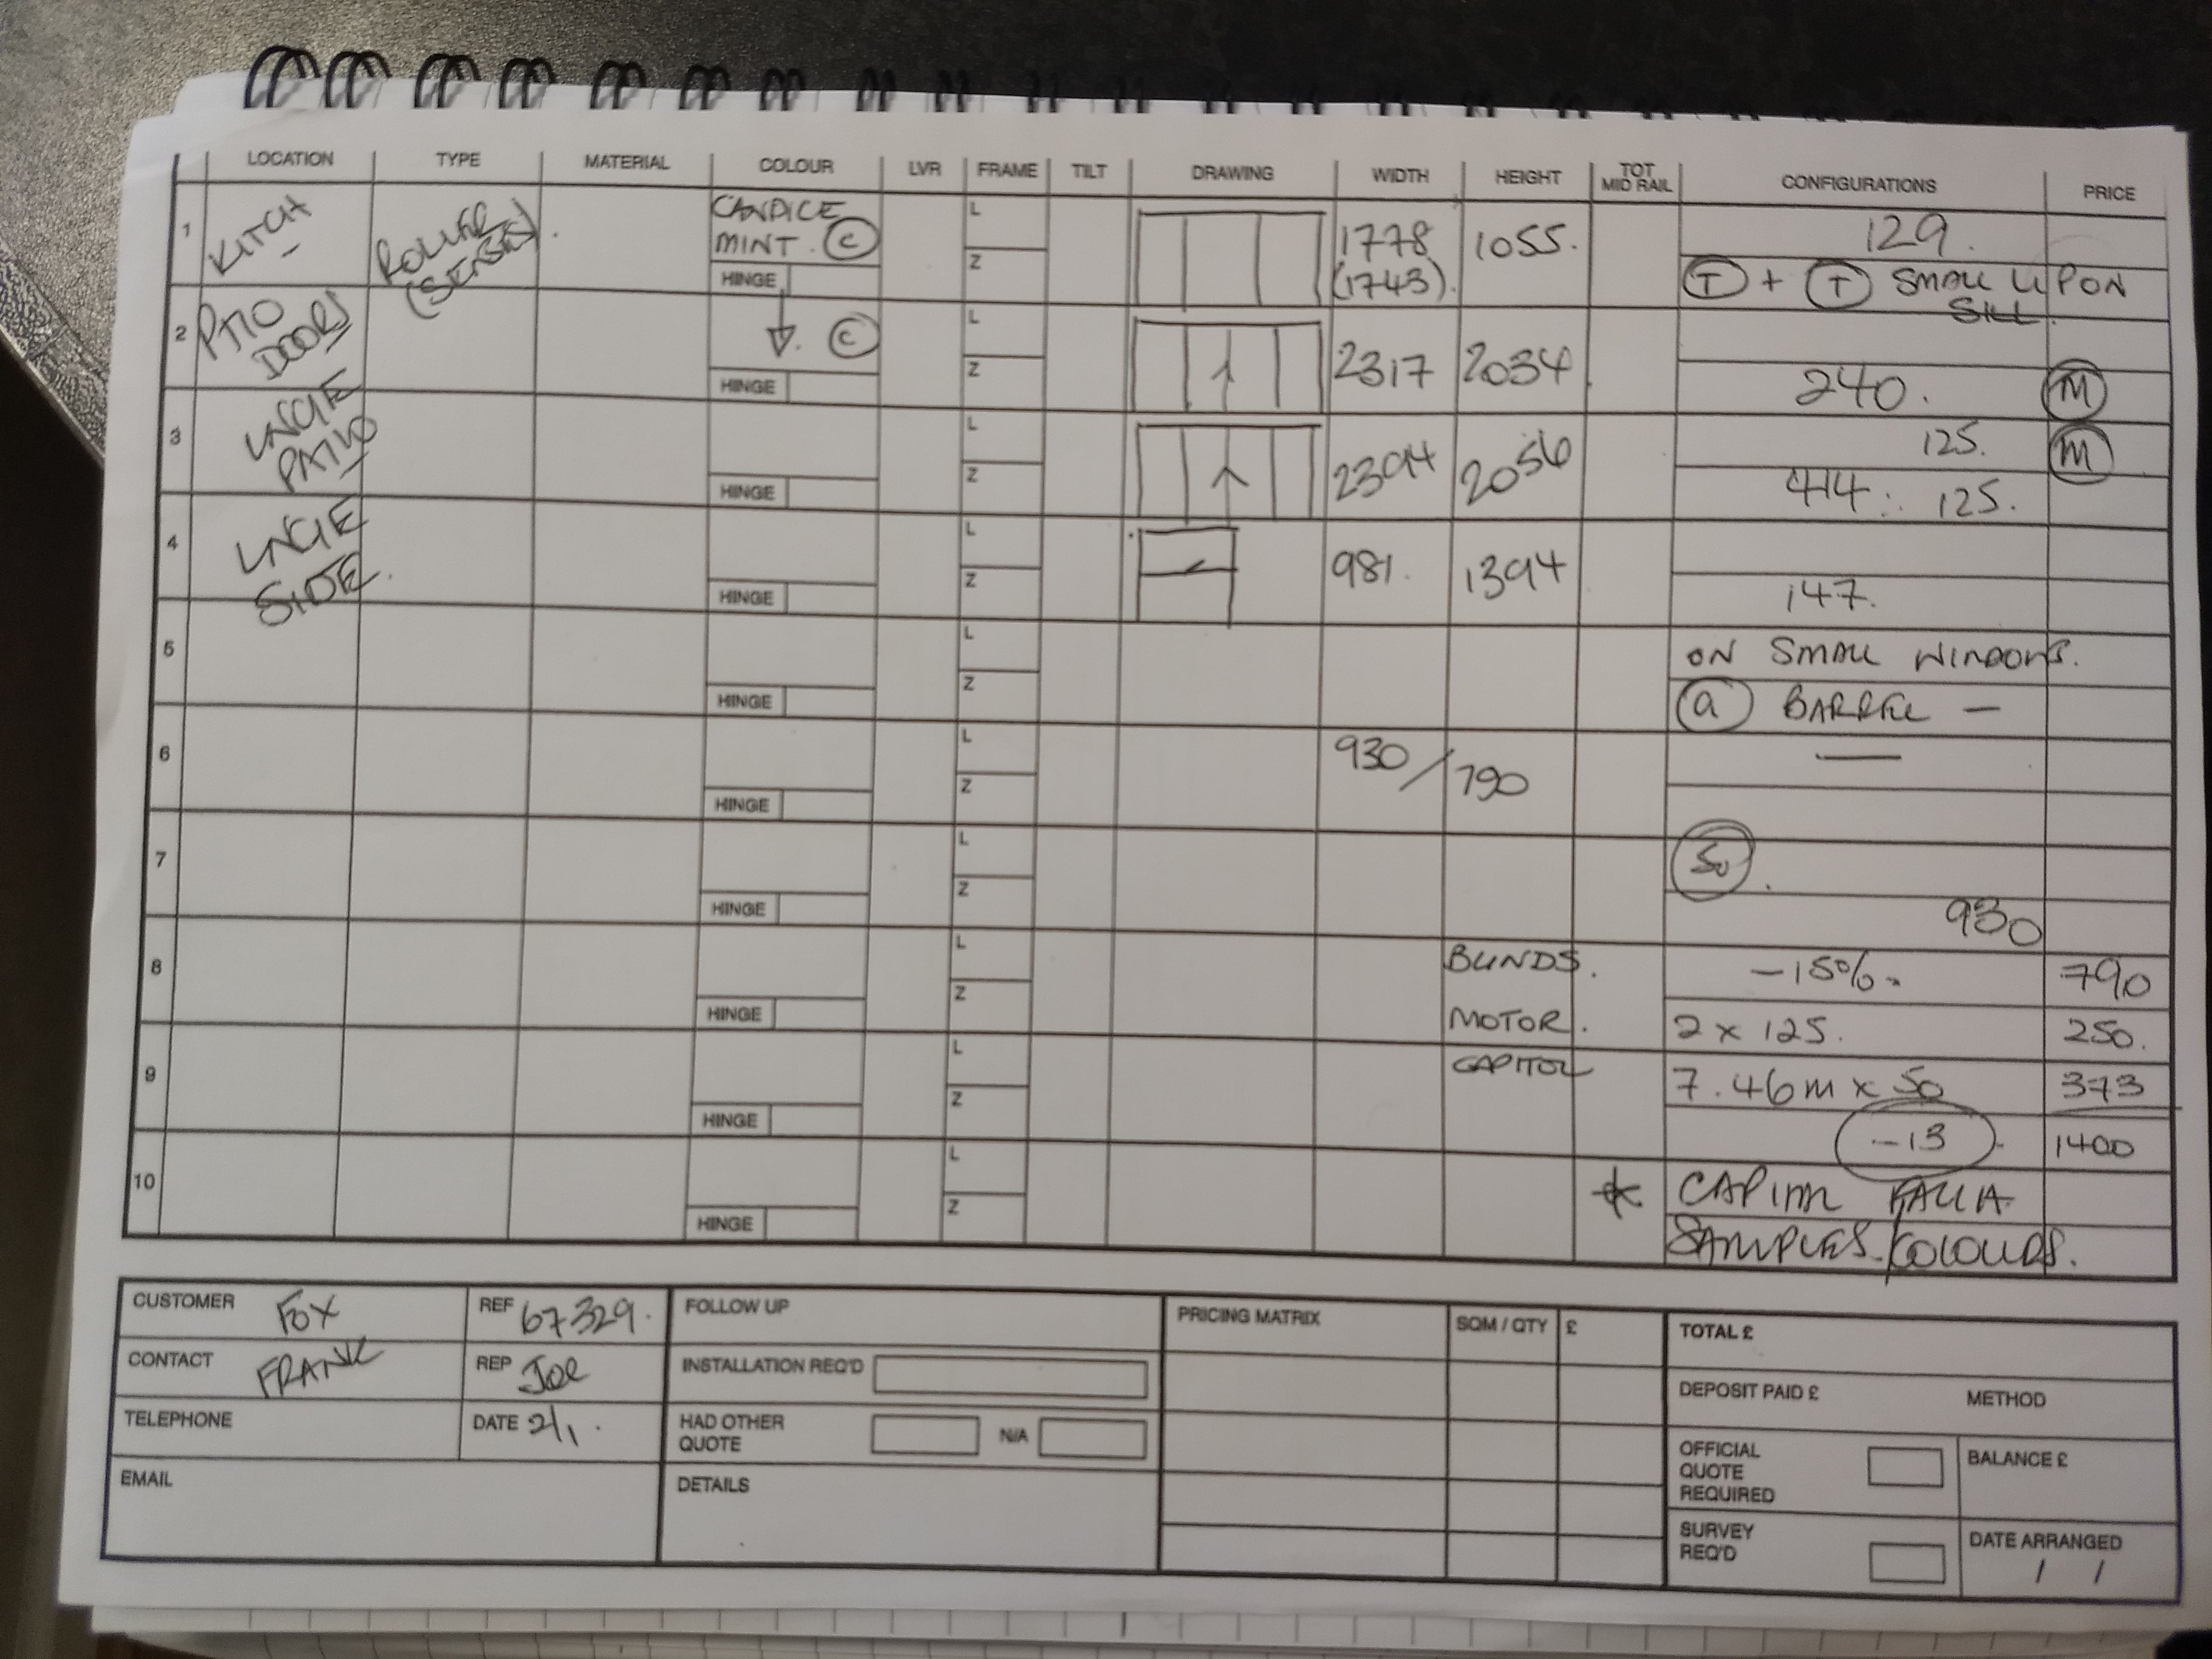 LOCATION TYPE MATERIAL COLOUR LVR FRAME TILT DRAWING WIDTH HEIGHT TOT MID RAIL CONFIGURATIONS PRICE
1 KITCH - ROLLER (SENSES) CANDICE MINT. C HINGE L Z 1778 (1743). 1055. 129.
T + T SMALL UPON SILL.
2 PATIO DOORS C HINGE L Z 2317 2034 240. M
3 LNGIE PATIO HINGE L Z 2394 2056 125. M
414. 125.
4 LNGIE SIDE. HINGE L Z 981. 1394 147.
5 HINGE L Z ON SMALL WINDOWS.
a BARREL —
6 HINGE L Z 930/790
7 HINGE L Z 50.
930
8 HINGE L Z BLINDS. -15%. 790
MOTOR. 2 x 125. 250.
9 HINGE L Z CAPITOL 7.46m x 50 373
-13 1400
10 HINGE L Z * CAPITAL
SAMPLES/COLOURS.
CUSTOMER FOX REF 67329.
CONTACT FRANK REP JOE
TELEPHONE DATE 2/1.
EMAIL
FOLLOW UP
INSTALLATION REQ'D
HAD OTHER QUOTE N/A
DETAILS
PRICING MATRIX SQM / QTY £
TOTAL £
DEPOSIT PAID £ METHOD
OFFICIAL QUOTE REQUIRED BALANCE £
SURVEY REQ'D DATE ARRANGED
/ /